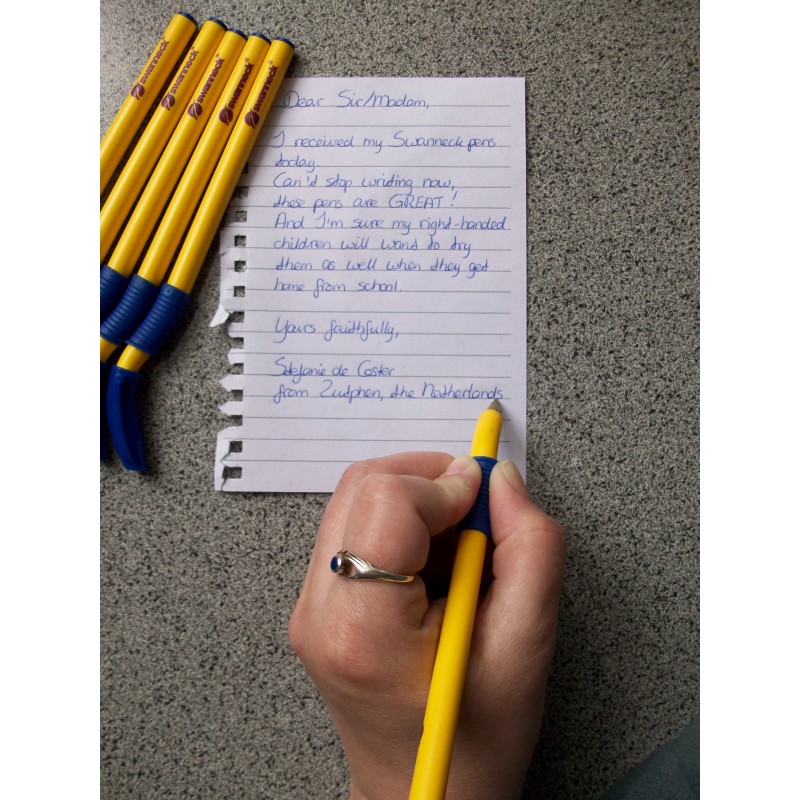 swanneck
swanneck
swanneck
swanneck
swanneck
Dear Sir/Madam,
I received my Swanneck pens
today.
Can't stop writing now,
these pens are GREAT!
And I'm sure my right-handed
children will want to try
them as well when they get
home from school.
Yours faithfully,
Stefanie de Coster
from Zutphen, the Netherlands